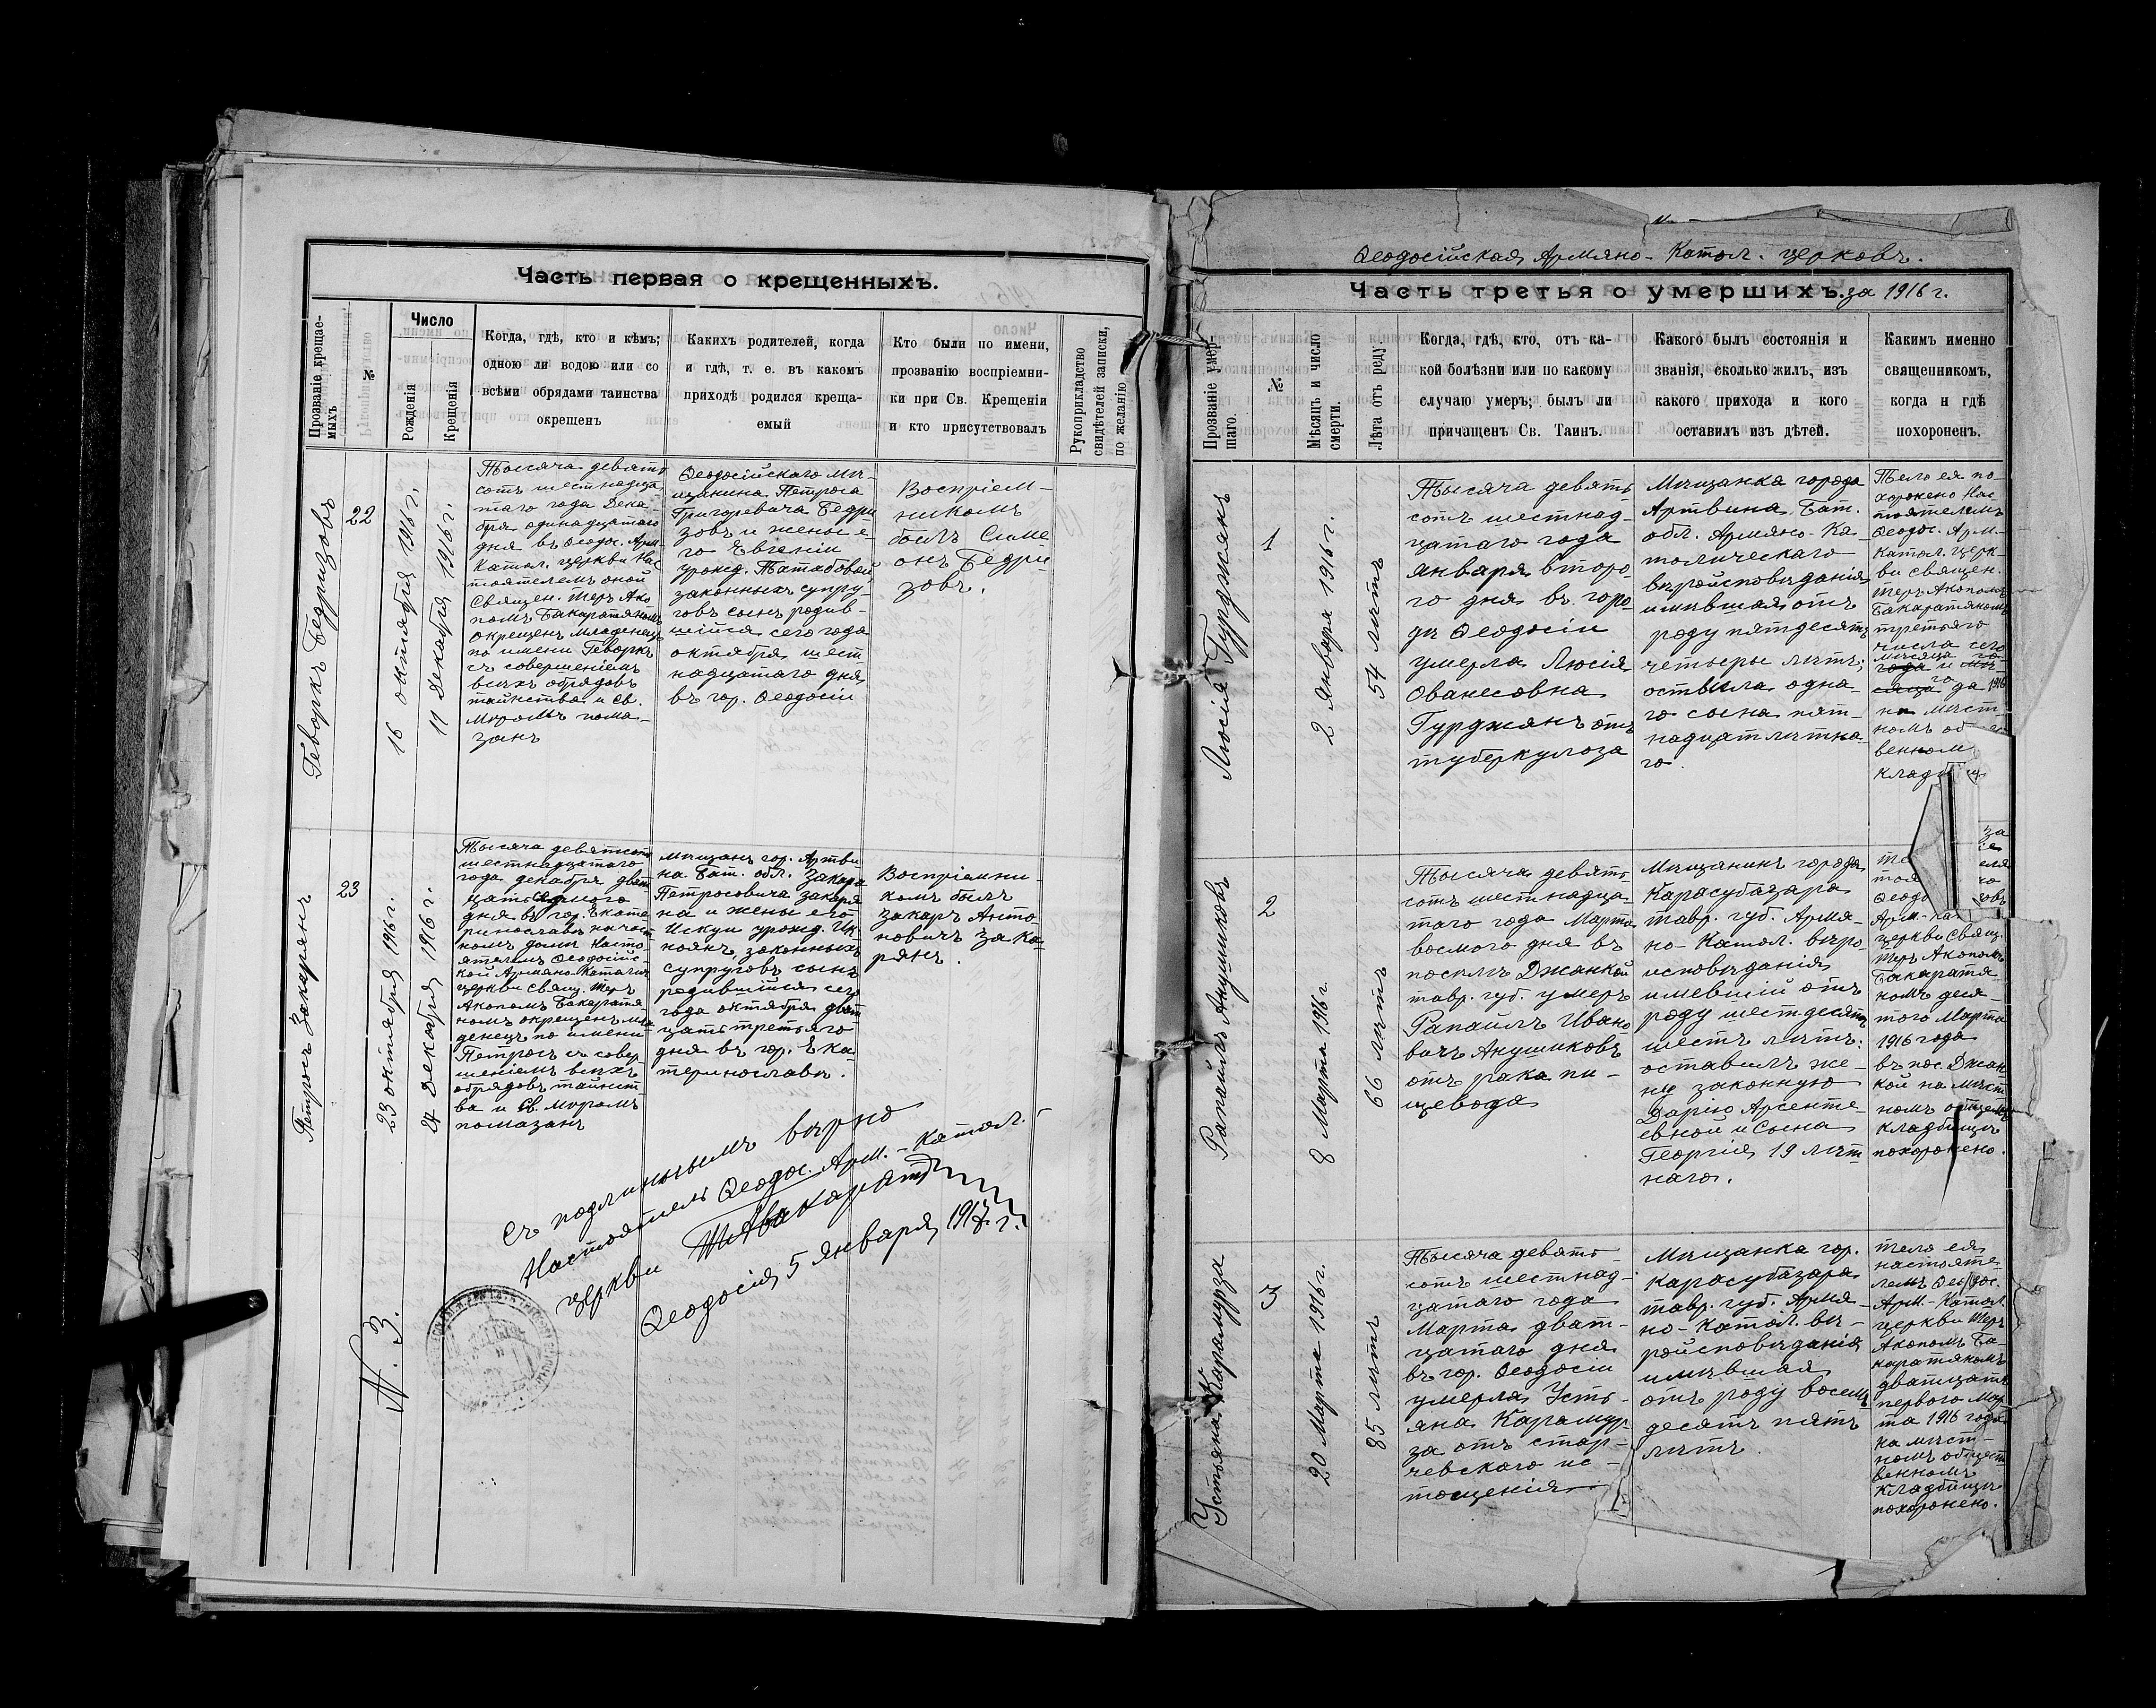 Часть первая о крещенныхъ.
Прозваніе крещае-
мыхъ
№
Число
Рожденія
Крещенія
Когда, гдѣ, кто и кѣмъ;
одною ли водою или со
всѣми обрядами таинства
окрещенъ
Какихъ родителей, когда
и гдѣ, т. е. въ какомъ
приходѣ родился креща-
емый
Кто были по имени,
прозванію воспріемни-
ки при Св. Крещеніи
и кто присутствовалъ
Рукоприкладство
свидѣтелей записки,
по желанію
Геворкъ Бедризовъ
22
16 октября 1916 г.
11 декабря 1916 г.
Тысяча девять
сотъ шестнадца
таго года Дека-
бря одинадцатаго
дня въ Ѳеодос. Арм.
Катол. церкви Нас
тоятелемъ оной
Священ. Теръ Ако
помъ Бакаратяномъ
окрещенъ младенецъ
по имени Геворкъ
съ совершеніемъ
всѣхъ обрядовъ
таинства и Св.
Муромъ пома-
занъ
Ѳеодосійскаго мѣ-
щанина Петроса
Григоревича Бедри
зовъ и жены е-
го Евгеніи
урожд. Татабовой
законныхъ супру-
говъ сынъ родив-
шійся сего года
октября шест
надцатаго дня
въ гор. Ѳеодосіи
Воспріем-
никомъ
былъ Симе-
онъ Бедри-
зовъ.
Петросъ Закарянъ
23
23 октября 1916 г.
27 декабря 1916 г.
Тысяча девятсотъ
шестнадцатаго
года декабря двад
цать седмого
дня въ гор. Екате
ринославѣ на част
номъ домѣ Насто-
ятелемъ Ѳеодосійс-
кой Армяно-Католич
церкви Свящ. Теръ
Акопомъ Бакаратя-
номъ окрещенъ мла
денецъ по имени
Петросъ съ совер-
шеніемъ всѣхъ
обрядовъ таинст
ва и Св. муромъ
помазанъ
мѣщанъ гор. Артви
на Бат. обл. Закара
Петросовича Закаря
на и жены его
Искуи урожд. Ик
ноянъ, законныхъ
супруговъ сынъ
родившійся сего
года октября двад
цать третьяго
дня въ гор. Ека-
теринославѣ.
Воспріемни-
комъ былъ
Закаръ Анто
новичъ Зака-
рянъ.
Съ подлиннымъ вѣрно
Настоятель Ѳеодос. Арм.-Катол.
церкви
Ѳеодосія 5 Января 1917 г.
N. 3.
Ѳеодосійская Армяно-Катол. церковь.
Часть третья о умершихъ. за 1916 г.
Прозваніе умер-
шаго.
№
Мѣсяцъ и число
смерти.
Лѣта отъ роду.
Когда, гдѣ, кто, отъ ка-
кой болѣзни или по какому
случаю умеръ; былъ ли
причащенъ Св. Таинъ.
Какого былъ состоянія и
званія, сколько жилъ, изъ
какого прихода и кого
оставилъ изъ дѣтей.
Какимъ именно
священникомъ,
когда и гдѣ
похороненъ.
Люсія Гурджянъ
1
2 Января 1916 г.
54 лѣтъ
Тысяча девять
сотъ шестнад-
цатаго года
Января второ-
го дня въ горо-
дѣ Ѳеодосіи
умерла Люсія
Ованесовна
Гурджянъ отъ
туберкулоза
Мѣщанка города
Артвина Бат.
обл. Армяно-Ка
толическаго
вѣроисповѣданія
имѣвшая отъ
роду пятдесятъ
четыре лѣтъ;
оставила одна-
го сына пят-
надцатлѣтня-
го.
Тело ея по-
хоронено Нас-
тоятелемъ
Ѳеодос. Арм.-
Катол. церк-
ви священ.
Теръ Акопомъ
Бакаратяномъ
третьяго
числа сего
мѣсяца го
года и мѣ
сяца да 1916
на мѣст-
номъ об
венном
клад
Рапаилъ Акушиковъ
2
8 Марта 1916 г.
66 лѣтъ
Тысяча девять
сотъ шестнадца-
таго года Марта
восмого дня въ
поселкѣ Джанкой
тавр. губ. умеръ
Рапаилъ Ивано
вичъ Акушиковъ
отъ рака пи-
щевода
Мѣщанинъ города
Карасубазара
тавр. губ. Армя-
но-Катол. вѣро-
исповѣданія
имевшій отъ
роду шестдесятъ
шесть лѣтъ:
оставилъ же-
ну законную
Дарію Арсенте-
евной и Сына
Георгія 19 лѣт
наго.
Арм-Ка
церкви Свящ.
Теръ Акопомъ
Бакаратя-
номъ деся-
того Марта
1916 года
въ пос. Джан
кой на мѣст
номъ
кладбищѣ
похоронено.
Устьяна Карамурза
3
20 Марта 1916 г.
85 лѣтъ
Тысяча девять
сотъ шестнад-
цатаго года
Марта дват-
цатаго дня
въ гор. Ѳеодосіи
умерла Усть-
яна Карамур-
за отъ стар-
чевскаго ис-
тощенія
Мѣщанка гор.
Карасубазара
тавр. губ. Армя-
но-Катол. вѣ-
роисповѣданія
имѣвшая
отъ роду восемь
десятъ пять
лѣтъ.
тело ея
настояте-
лемъ Ѳеодос.
Арм.-Катол.
церкви Теръ
Акопомъ Ба-
каратяномъ
дватцать
первого Мар
та 1916 года
на мѣст-
номъ общест
венномъ
кладбищѣ
похоронено.